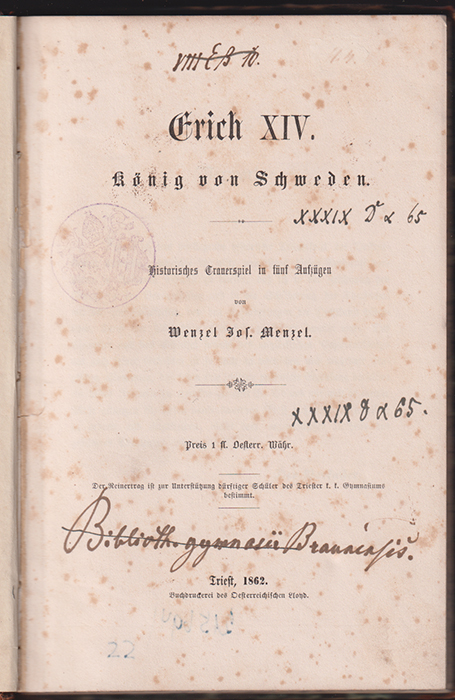 VIII Eß 10.
Erich XIV.
König von Schweden.
XXXIX D α 65
Historisches Trauerspiel in fünf Aufzügen
von
Wenzel Jos. Menzel.
XXXIX D α 65.
Preis 1 fl. Oesterr. Währ.
Der Reinertrag ist zur Unterstützung dürftiger Schüler des Triester k. k. Gymnasiums
bestimmt.
Biblioth. gymnasii Braunensis.
Triest, 1862.
Buchdruckerei des Oesterreichischen Lloyd.
22